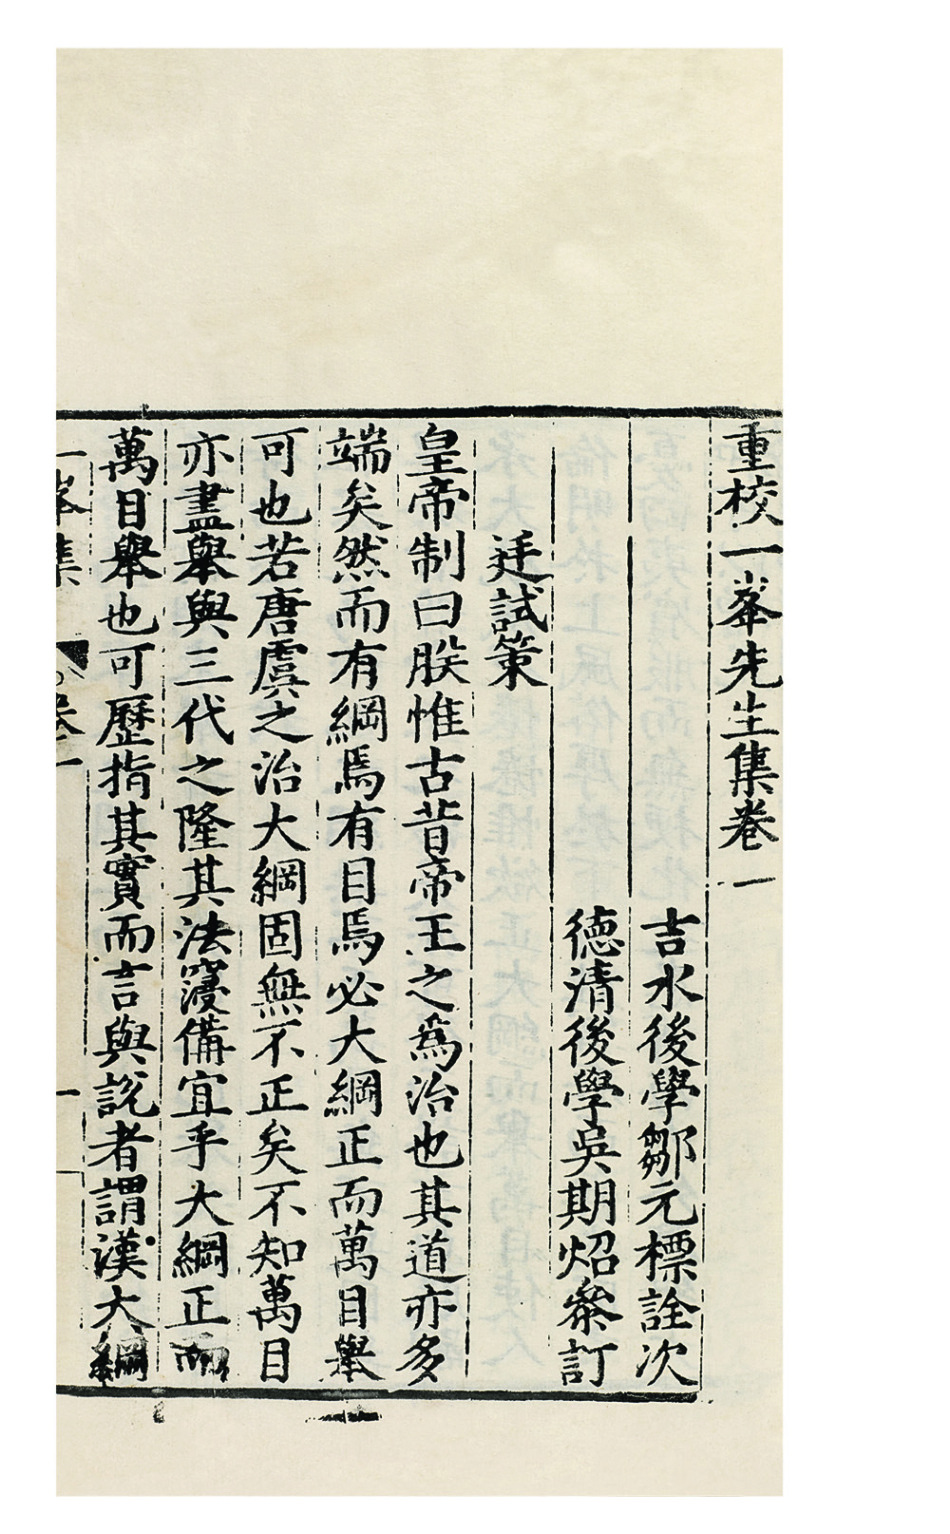 重校一峯先生集卷一
吉水後學鄒元標詮次
德清後學吳期炤叅訂
廷試策
皇帝制曰朕惟古昔帝王之爲治也其道亦多
端矣然而有綱焉有目焉必大綱正而萬目舉
可也若唐虞之治大綱固無不正矣不知萬目
亦盡舉與三代之隆其法寖備宜乎大綱正而
萬目舉也可歷指其實而言與說者謂漢大綱
一峯集 卷一 一